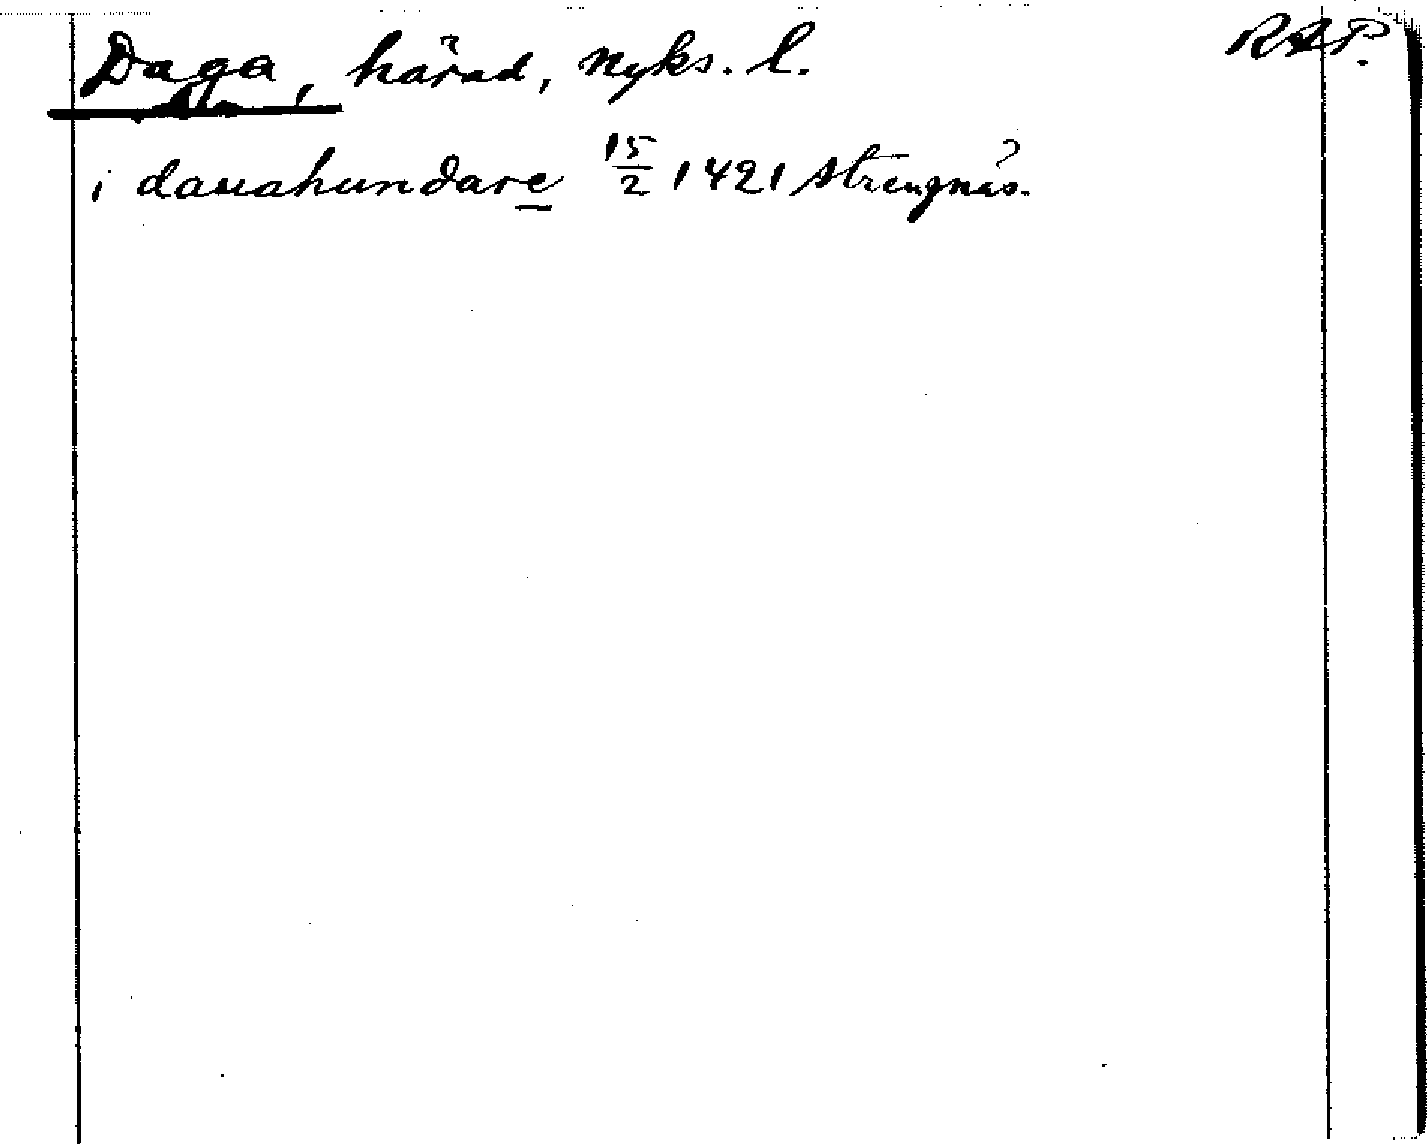 Daga, härad, Nyks. l. RAP.
i dauahundare 15/2 1421 Strengnäs.